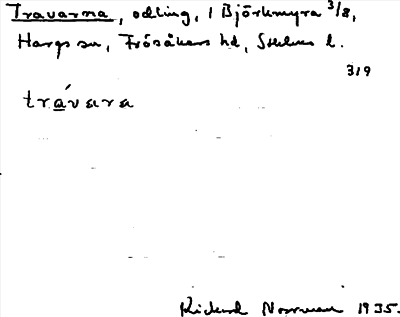 Travarna, odling, 1 Björkmyra 3/8,
Hargs sn, Frösåkers hd, Sthlms l.
319
trávara
Rickard Norrman 1935.